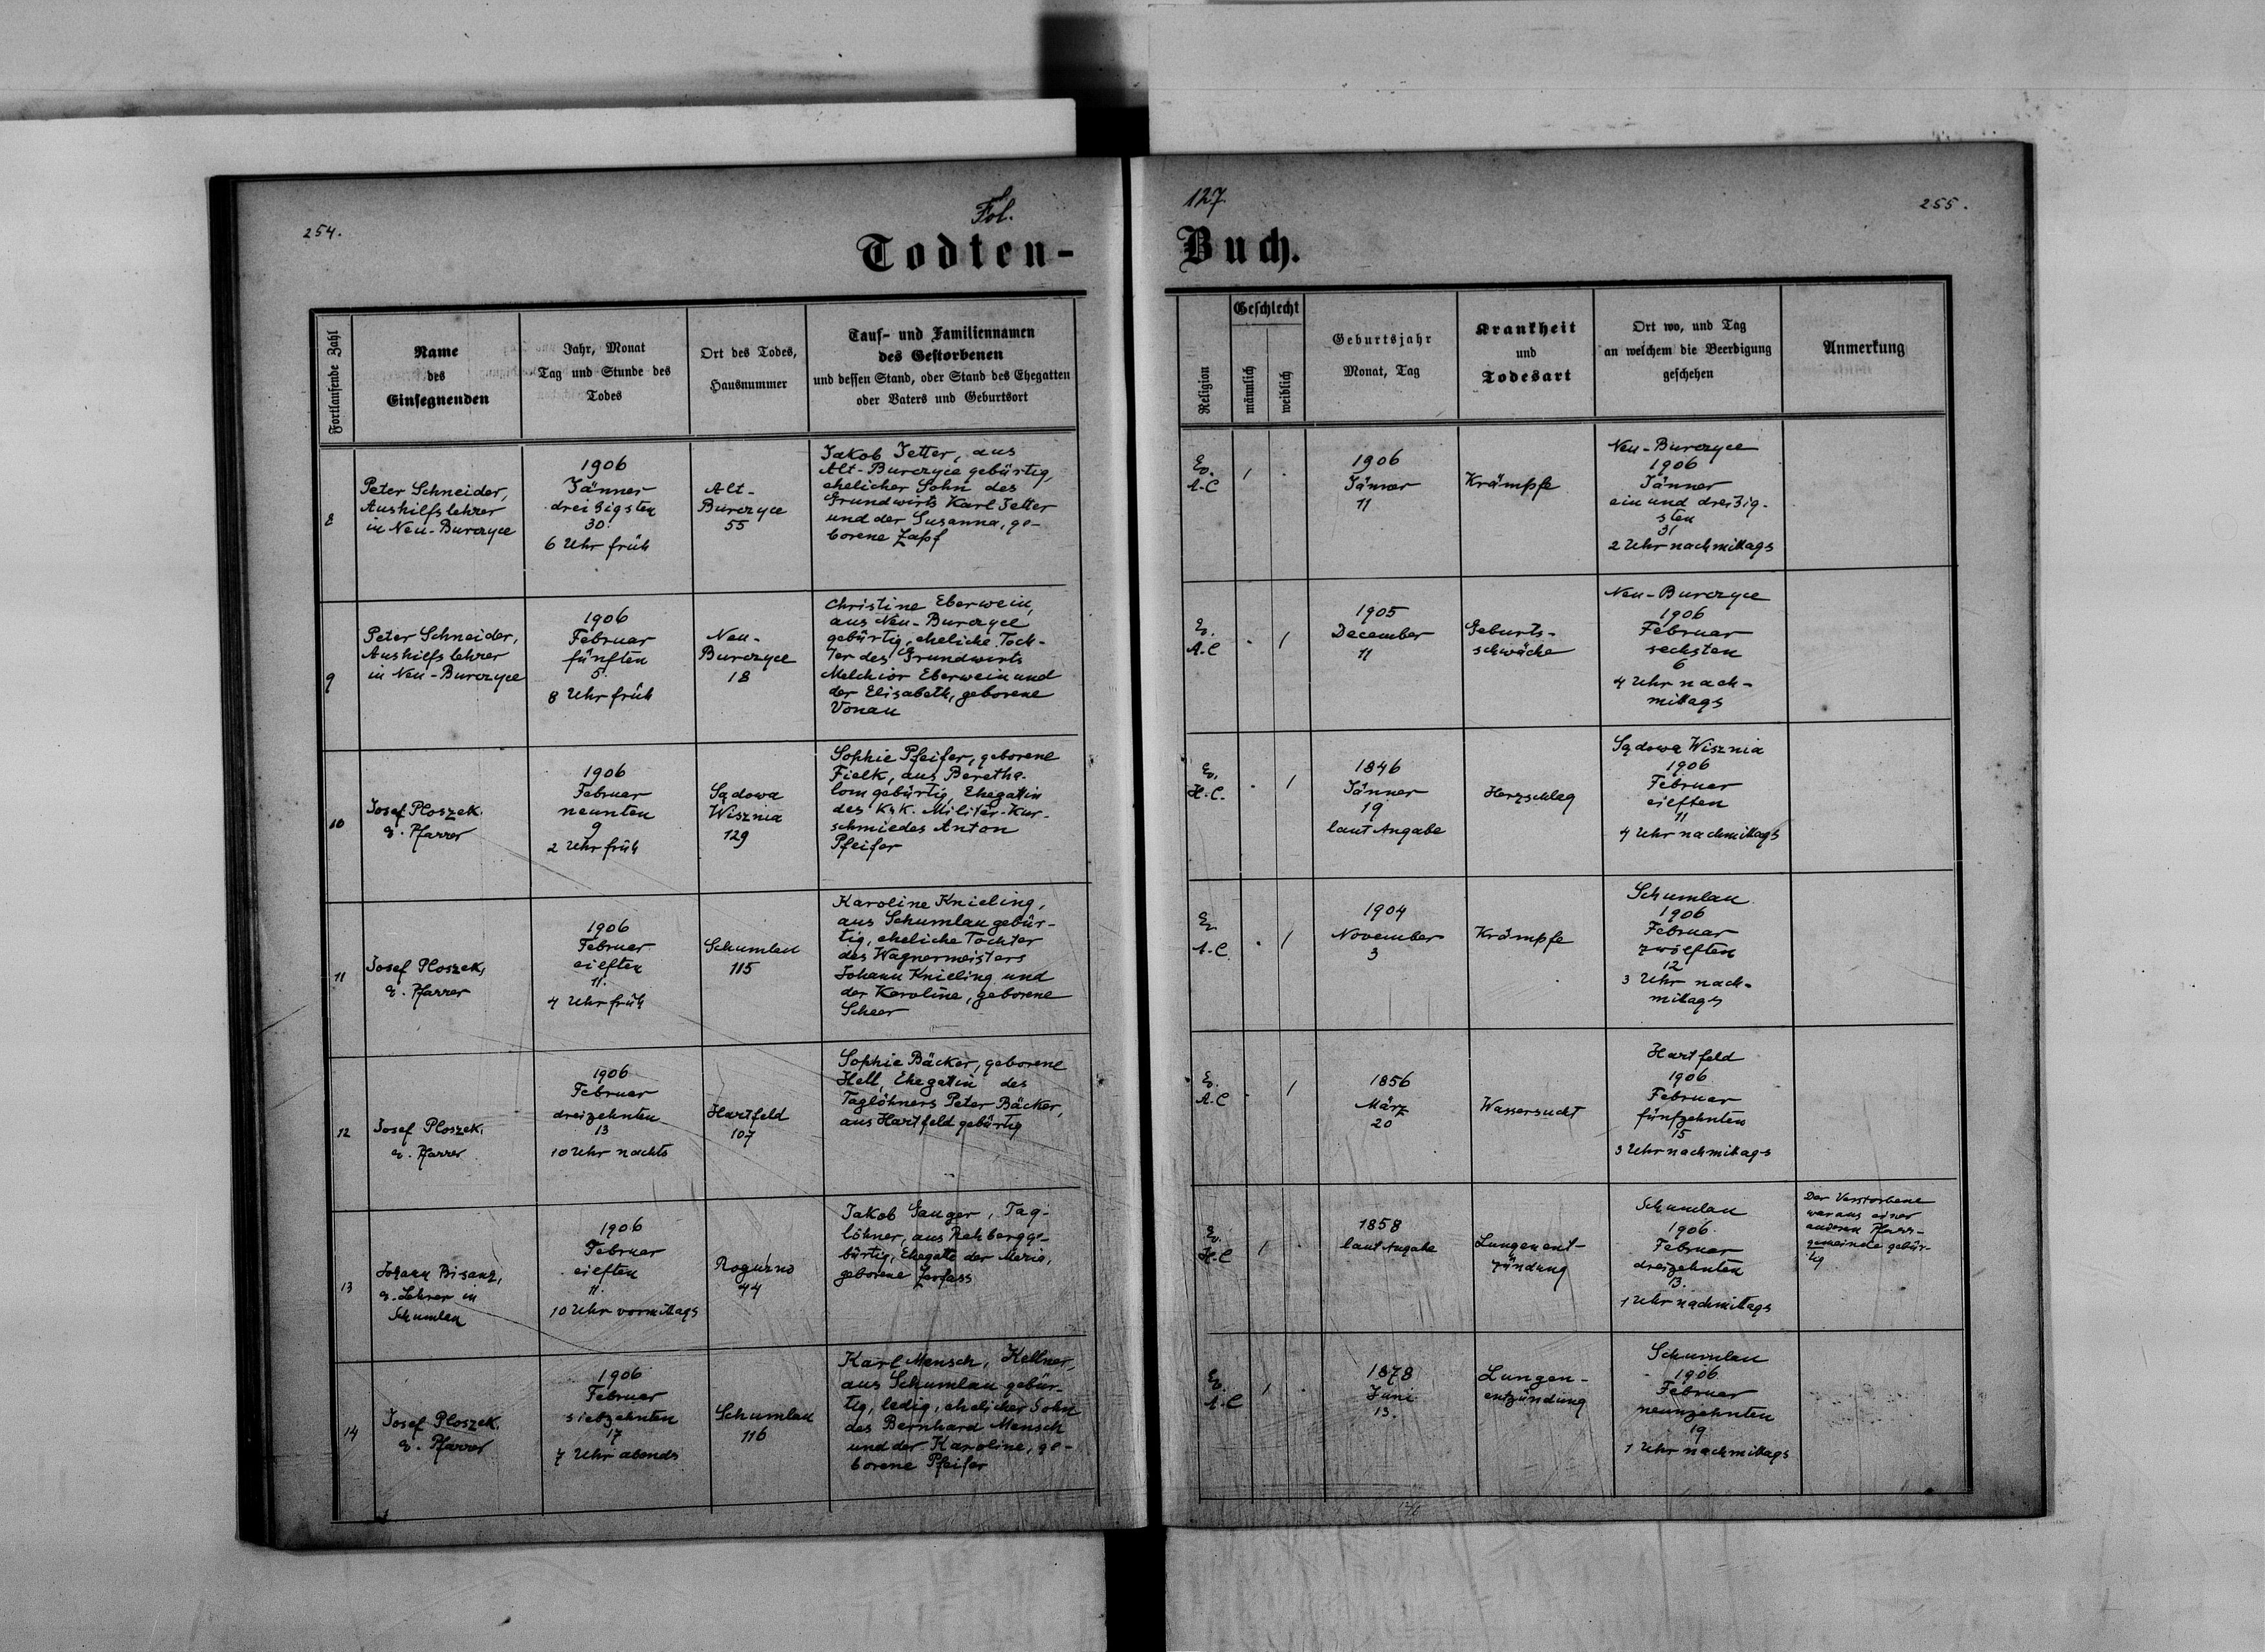 254.
Fol.
127
255.
Todten-
Buch.
Fortlaufende Zahl
Name
des
Einsegnenden
Jahr, Monat
Tag und Stunde des
Todes
Ort des Todes,
Hausnummer
Tauf- und Familiennamen
des Gestorbenen
und dessen Stand, oder Stand des Ehegatten
oder Vaters und Geburtsort
Religion
Geschlecht
männlich
weiblich
Geburtsjahr
Monat, Tag
Krankheit
und
Todesart
Ort wo, und Tag
an welchem die Beerdigung
geschehen
Anmerkung
8
Peter Schneider,
Aushilfslehrer
in Neu-Burczyce
1906
Jänner
dreißigsten
30.
6 Uhr früh
Alt-
Burczyce
55
Jakob Jetter, aus
Alt-Burczyce gebürtig,
ehelicher Sohn des
Grundwirts Karl Jetter
und der Susanna, ge-
borene Zapf
Ev.
A.C
1
1906
Jänner
11
Krämpfe
Neu-Burczyce
1906
Jänner
ein und dreißig-
sten
31
2 Uhr nachmittags
9
Peter Schneider,
Aushilfslehrer
in Neu-Burczyce
1906
Februar
fünften
5.
8 Uhr früh
Neu-
Burczyce
18
Christine Eberwein,
aus Neu-Burczyce
gebürtig, eheliche Toch-
ter des Grundwirts
Melchior Eberwein und
der Elisabeth, geborene
Vonau
Ev.
A.C
1
1905
December
11
Geburts-
schwäche
Neu-Burczyce
1906
Februar
sechsten
6
4 Uhr nach-
mittags
10
Josef Ploszek,
ev. Pfarrer
1906
Februar
neunten
9
2 Uhr früh
Sądowa
Wisznia
129
Sophie Pfeifer, geborene
Fielk, aus Beretha-
lom gebürtig, Ehegattin
des K.K. Militär-Kur-
schmiedes Anton
Pfeifer
Ev.
H.C.
1
1846
Jänner
19
laut Angabe
Herzschlag
Sądowa Wisznia
1906
Februar
eilften
11
4 Uhr nachmittags
11
Josef Ploszek,
ev. Pfarrer
1906
Februar
eilften
11.
4 Uhr früh
Schumlau
115
Karoline Knieling,
aus Schumlau gebür-
tig, eheliche Tochter
des Wagnermeisters
Johann Knieling und
der Karoline, geborene
Scheer
Ev
A.C.
1
1904
November
3
Krämpfe
Schumlau
1906
Februar
zwölften
12
3 Uhr nach-
mittags
12
Josef Ploszek,
ev. Pfarrer
1906
Februar
dreizehnten
13
10 Uhr nachts
Hartfeld
107
Sophie Bäcker, geborene
Hell, Ehegattin des
Taglöhners Peter Bäcker,
aus Hartfeld gebürtig
Ev.
A.C
1
1856
März
20
Wassersucht
Hartfeld
1906
Februar
fünfzehnten
15
3 Uhr nachmittags
13
Johann Bisanz,
ev. Lehrer in
Schumlau
1906
Februar
eilften
11.
10 Uhr vormittags
Roguźno
44
Jakob Gauger, Tag-
löhner, aus Rehberg ge-
bürtig, Ehegatte der Maria,
geborene Zerfass
Ev.
H.C
1
1858
laut Angabe
Lungenent-
zündung
Schumlau
1906
Februar
dreizehnten
13.
1 Uhr nachmittags
Der Verstorbene
war aus einer
anderen Pfarr-
gemeinde gebür-
tig
14
Josef Ploszek,
ev. Pfarrer
1906
Februar
siebzehnten
17
7 Uhr abends
Schumlau
116
Karl Mensch, Kellner,
aus Schumlau gebür-
tig, ledig, ehelicher Sohn
des Bernhard Mensch
und der Karoline, ge-
borene Pfeifer
Ev.
A.C
1
1878
Juni
13.
Lungen-
entzündung
Schumlau
1906
Februar
neunzehnten
19
1 Uhr nachmittags